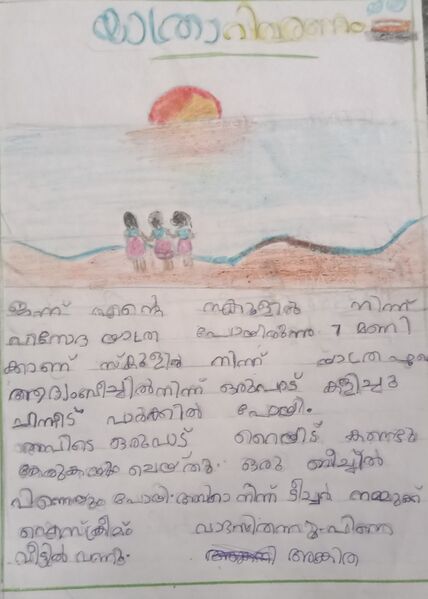 യാത്രാവിവരണം
ഇന്ന് എന്റെ സ്കൂളിൽ നിന്ന്
വിനോദ യാത്ര പോയിരുന്നു 7 മണി
ക്കാണ് സ്കൂളിൽ നിന്ന് യാത്ര
ആദ്യംബീച്ചിൽനിന്ന് ഒരുപാട് കളിച്ചു
പിന്നീട് പാർക്കിൽ പോയി.
അവിടെ ഒരുപാട് റൈയ്ഡ് കണ്ടു
ചെയ്തു. ഒരു ബീച്ചിൽ
പിന്നെയും പോയി. നിന്ന് ടീച്ചർ നമ്മുക്ക്
ഐസ്ക്രീമും പിന്നെ
വീട്ടിൽ വന്നു. അങ്കിത